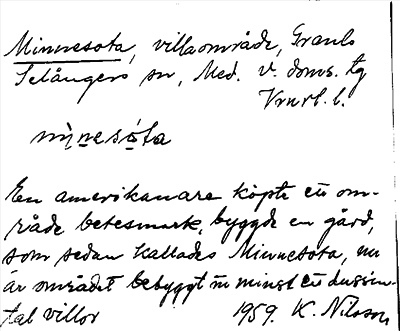 Minnesota, villaområde, Granlo
Selångers sn, Med. v. doms. tg
Vnrl. l.
mìnesǫ́ta
En amerikanare köpte ett om-
råde betesmark, byggde en gård,
som sedan kallades Minnesota, nu
är området bebyggt m minst ett dussin-
tal villor 1959. K. Nilsson